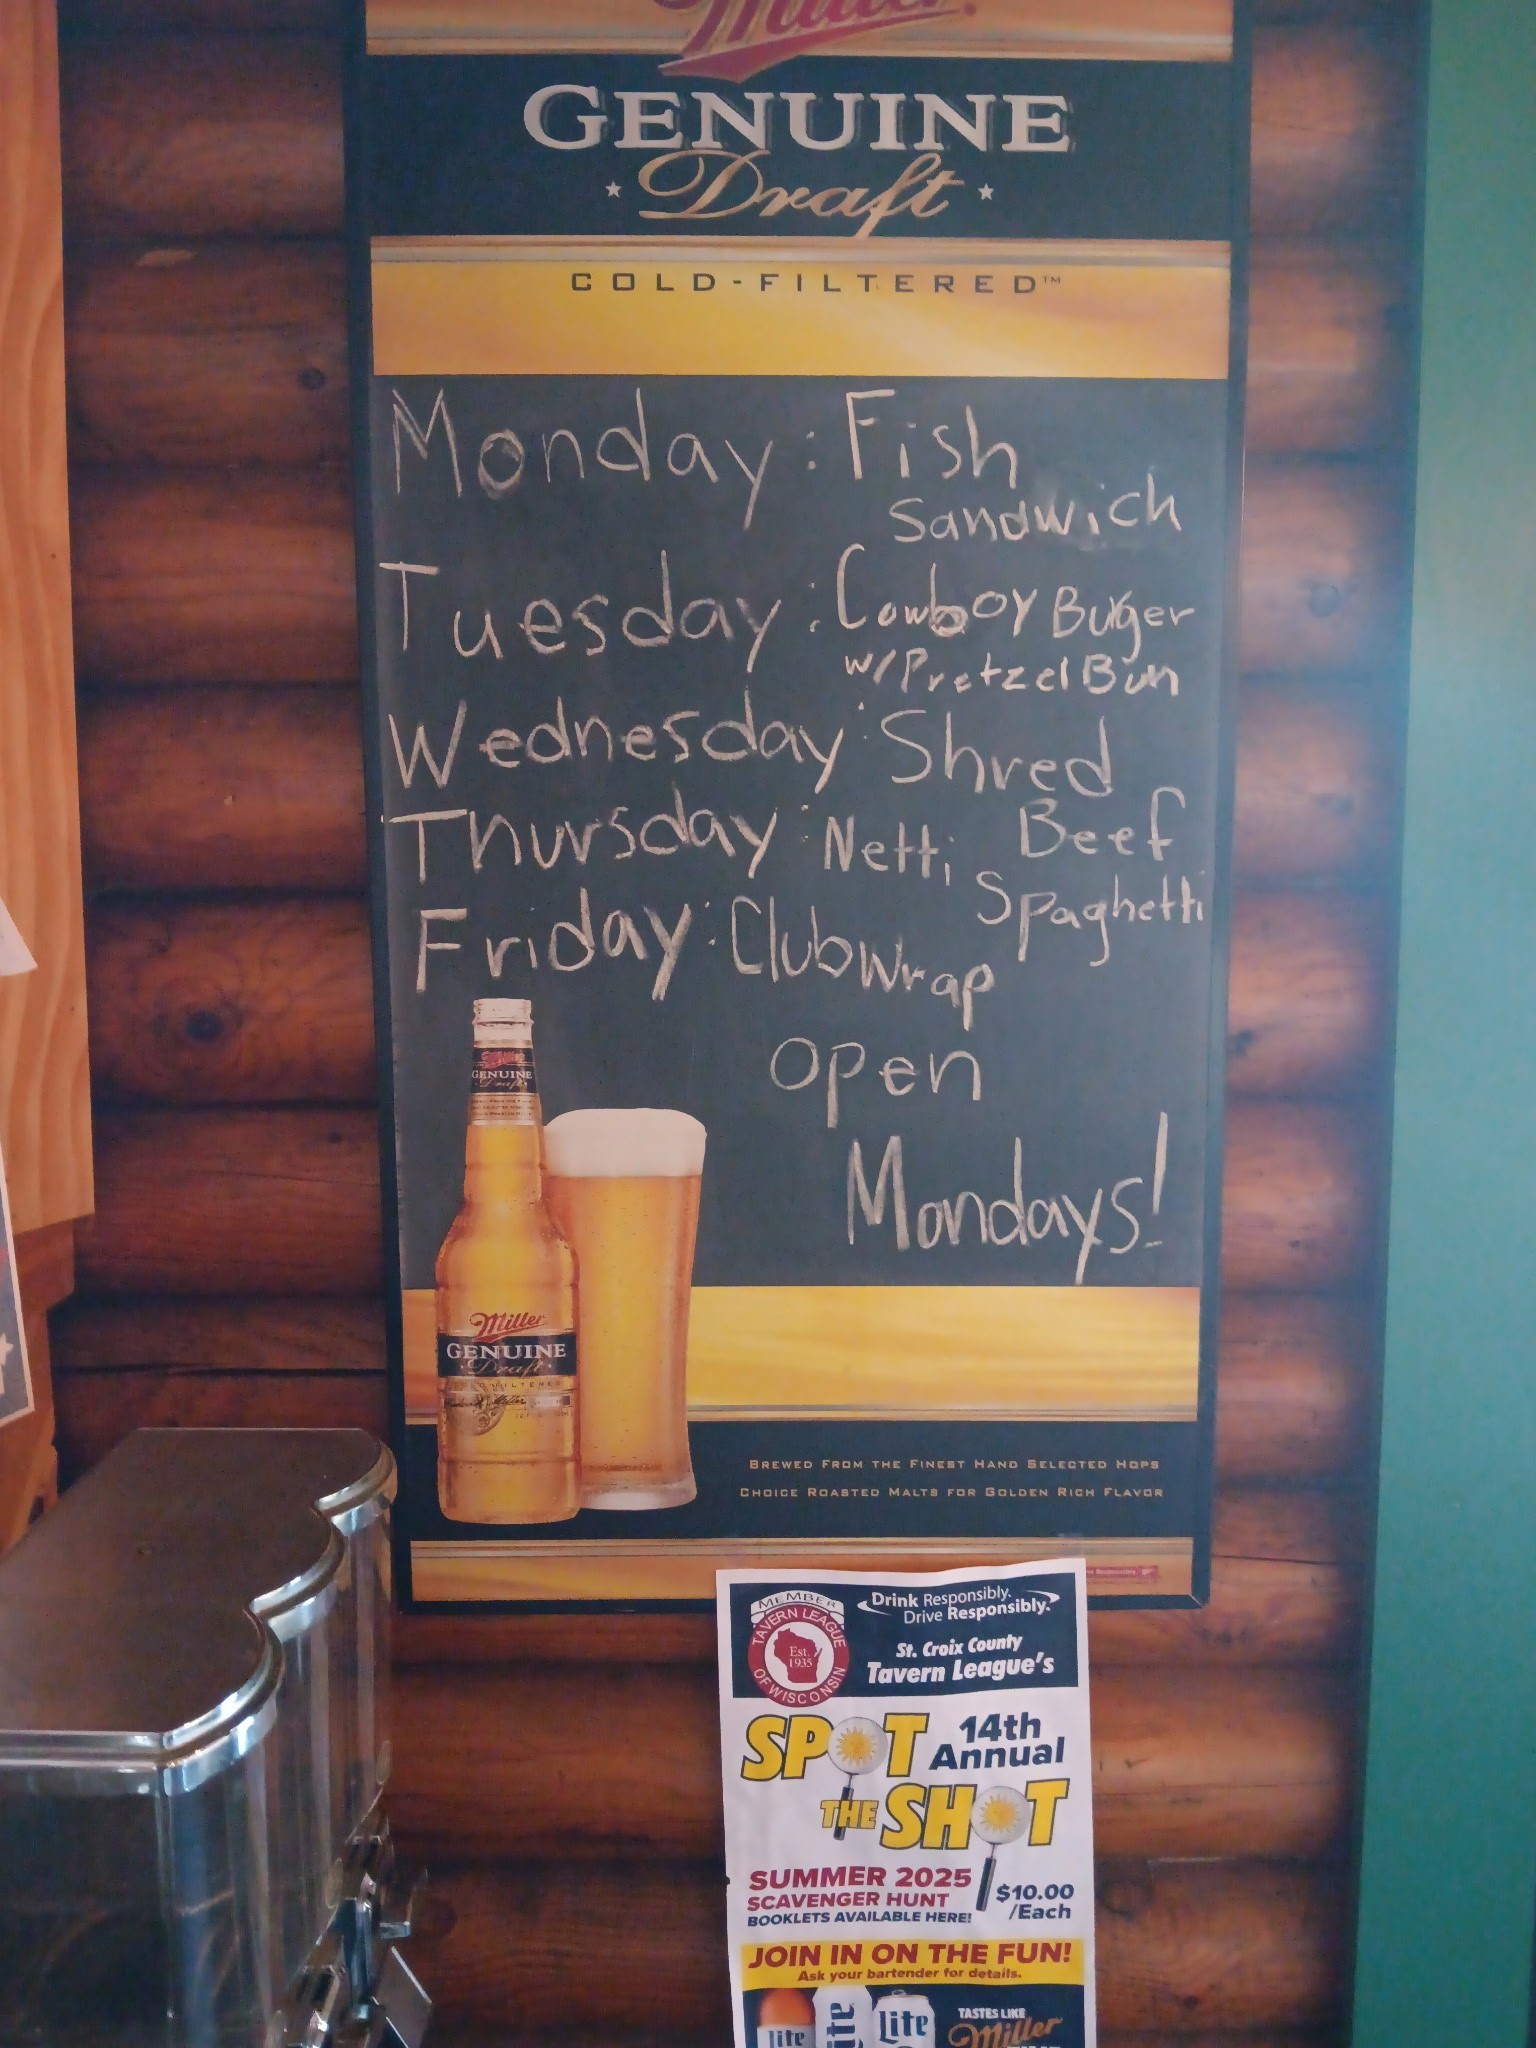 Miller
GENUINE
Draft
COLD-FILTERED™
Monday: Fish
Sandwich
Tuesday: Cowboy Burger
w/Pretzel Bun
Wednesday: Shred
Beef
Thursday: Netti
Spaghetti
Friday: Club Wrap
Open
Mondays!
Miller
GENUINE
Draft
BREWED FROM THE FINEST HAND SELECTED HOPS
CHOICE ROASTED MALTS FOR GOLDEN RICH FLAVOR
MEMBER
TAVERN LEAGUE
Est.
1935
OF WISCONSIN
Drink Responsibly.
Drive Responsibly.
St. Croix County
Tavern League's
SPOT
THE SHOT
14th
Annual
SUMMER 2025
SCAVENGER HUNT
BOOKLETS AVAILABLE HERE!
$10.00
/Each
JOIN IN ON THE FUN!
Ask your bartender for details.
lite
Lite
TASTES LIKE
Miller